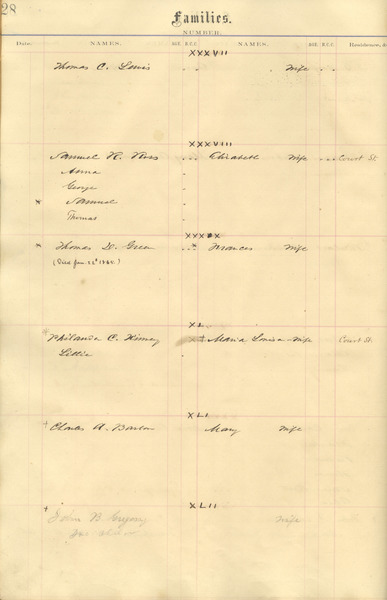 28
Families.
NUMBER.
Date. NAMES. NAMES. Residence, &
XXXVII
Thomas C. Lewis . . Wife . .
XXXVIII
Samuel R. Ross . . . Elizabeth Wife . . . Court St.
Anna "
George "
* Samuel "
Thomas "
XXXIX
* Thomas D. Green . . * Frances Wife
(Died Jan 22d 1885.)
XL
+ Philander C. Kinney + Maria Louisa - Wife Court St.
Lettie
XLI
+ Charles A. Mary Wife
XLII
+ John B. Gregory Wife